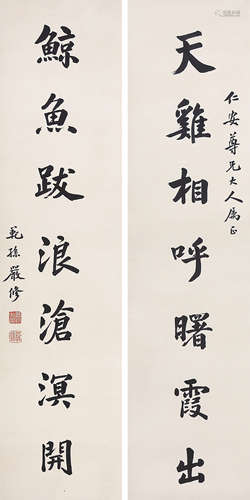 仁安尊兄大人属正
天雞相呼曙霞出
鯨魚跋浪滄溟開
範孫嚴修